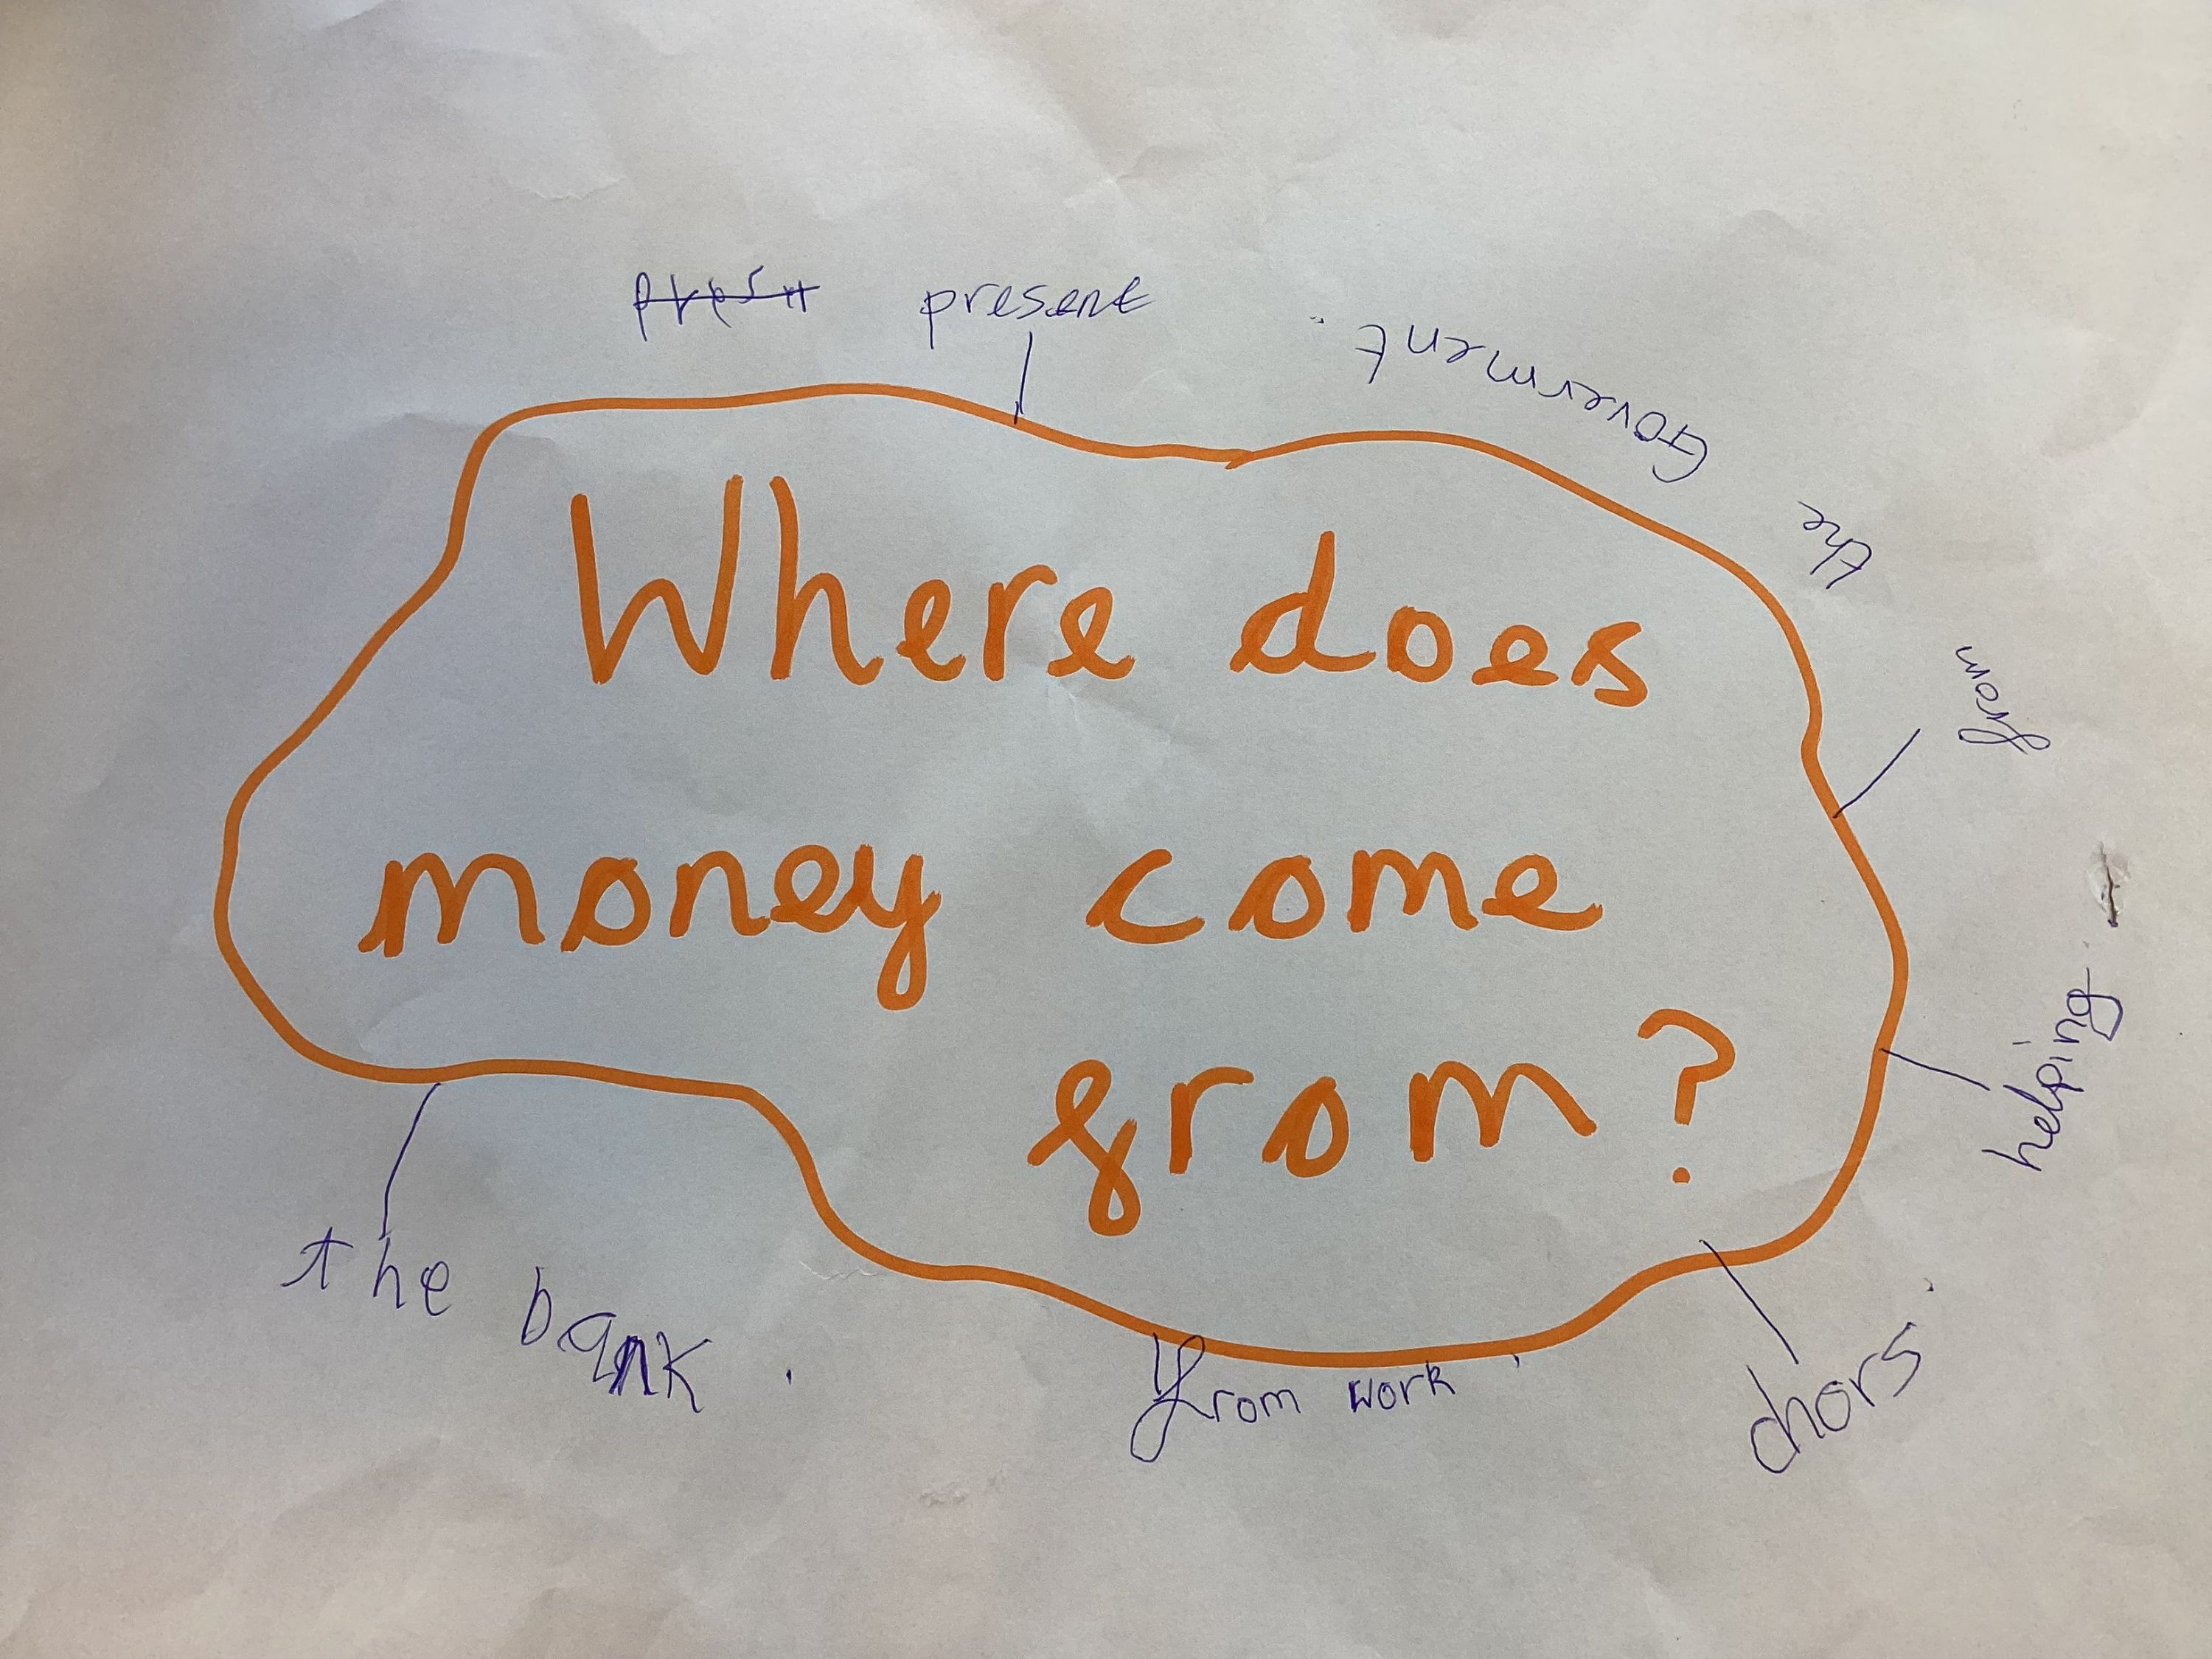 Where does
money come
from?
present
from the Government.
helping.
chors.
from work.
the bank.